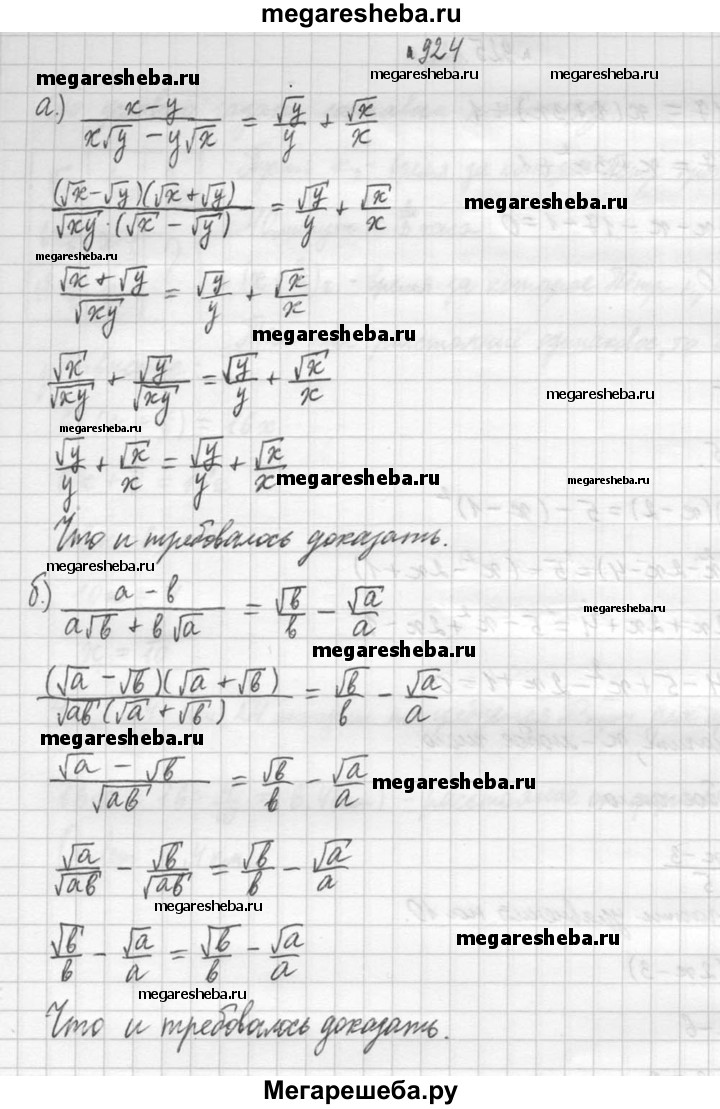 megaresheba.ru
№924
megaresheba.ru megaresheba.ru megaresheba.ru
а.) (x-y)/(x√y - y√x) = √y/y + √x/x
((√x-√y)(√x+√y))/(√xy·(√x - √y)) = √y/y + √x/x
megaresheba.ru
megaresheba.ru
(√x+√y)/√xy = √y/y + √x/x
megaresheba.ru
√x/√xy + √y/√xy = √y/y + √x/x
megaresheba.ru
√y/y + √x/x = √y/y + √x/x
megaresheba.ru
Что и требовалось доказать.
megaresheba.ru
б.) (a - в)/(a√в + в√a) = √в/в - √a/a
megaresheba.ru
megaresheba.ru
((√a - √в)(√a + √в))/(√aв(√a + √в)) = √в/в - √a/a
megaresheba.ru
(√a - √в)/√aв = √в/в - √a/a
megaresheba.ru
√a/√aв - √в/√aв = √в/в - √a/a
megaresheba.ru
√в/в - √a/a = √в/в - √a/a
megaresheba.ru
megaresheba.ru
Что и требовалось доказать.
Мегарешеба.ру